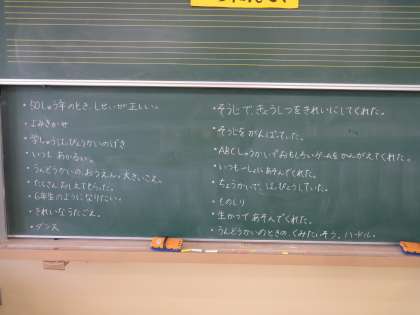 ・50しゅう年のとき、しせいが正しい。
・よみきかせ
・学しゅうはっぴょうかいのげき
・いつも あかるい。
・うんどうかいの、おうえん。大きいこえ。
・たくさんおしえてもらった。
・6年生のようになりたい。
・きれいなうたごえ。
・ダンス
・そうじで、きょうしつをきれいにしてくれた。
・そうじをがんばっていた。
・ABCしゅうかいでおもしろいゲームをかんがえてくれた。
・いつもいっしょにあそんでくれた。
・ちょうかいで、はっぴょうしていた。
・ものしり
・生かつであそんでくれた。
・うんどうかいのときの、くみたいそう。ハードル